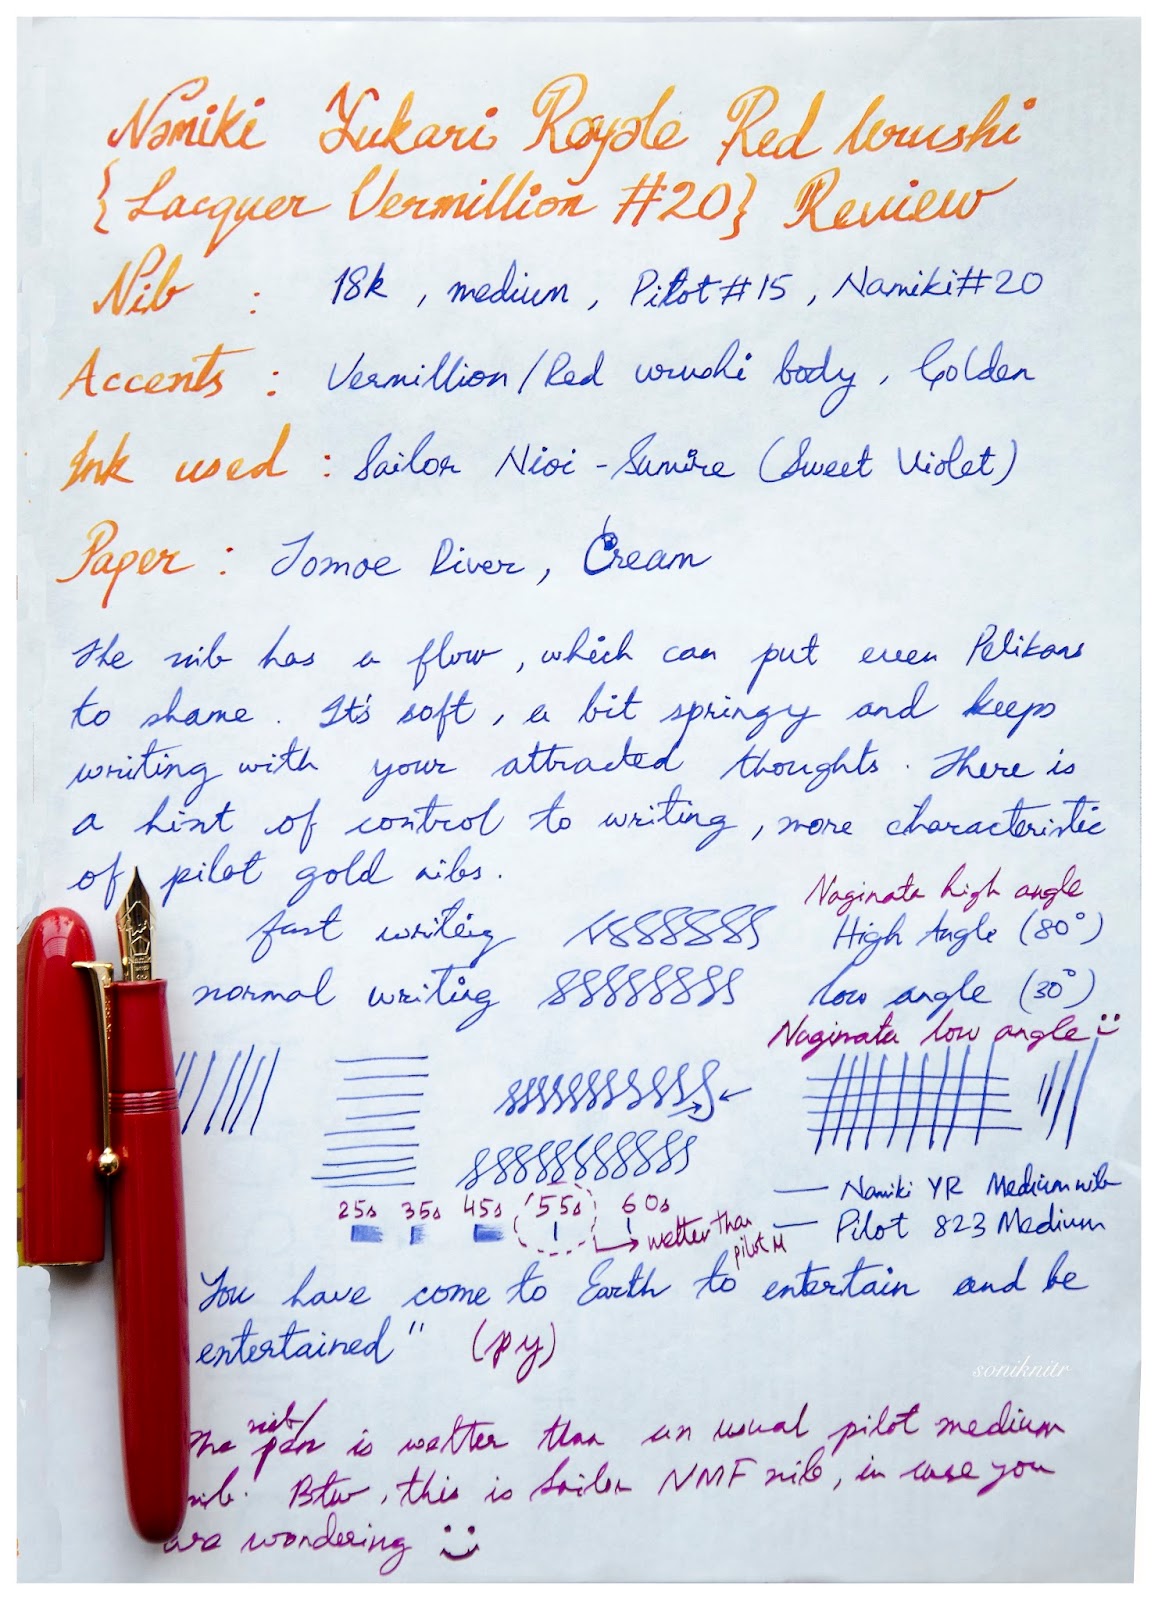 Namiki Yukari Royale Red Urushi
{Lacquer Vermillion #20} Review
Nib : 18k, medium, Pilot #15, Namiki #20
Accents : Vermillion/Red urushi body, Golden
Ink used : Sailor Nioi-Sumire (Sweet Violet)
Paper : Tomoe River, Cream
The nib has a flow, which can put even Pelikans
to shame. It's soft, a bit springy and keeps
writing with your attracted thoughts. There is
a hint of control to writing, more characteristic
of pilot gold nibs.
Naginata high angle
fast writing High Angle (80°)
normal writing low angle (30°)
Naginata low angle
25s 35s 45s 55s 60s
wetter than
pilot M
Namiki YR Medium nib
Pilot 823 Medium
You have come to Earth to entertain and be
entertained" (py)
soniknitr
nib/
The pen is wetter than an usual pilot medium
nib. Btw, this is Sailor NMF nib, in case you
are wondering :)